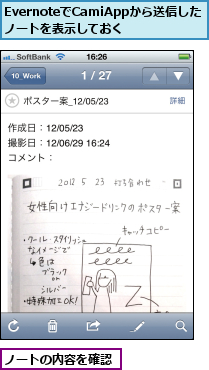 EvernoteでCamiAppから送信した
ノートを表示しておく
SoftBank 16:26
10_Work 1 / 27
ポスター案_12/05/23 詳細
作成日：12/05/23
撮影日：12/06/29 16:24
コメント：
2012 5 23 打ち合わせ
女性向けエナジードリンクのポスター案
キャッチコピー
・クール・スタイリッシュ
なイメージで
色は
ブラック
or
シルバー
・特殊加工OK!
ノートの内容を確認